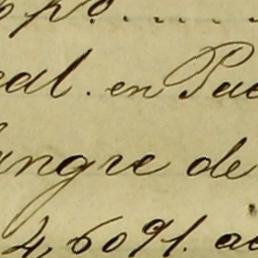 po.........
eal. en Pue
angre de
4,6091. ac